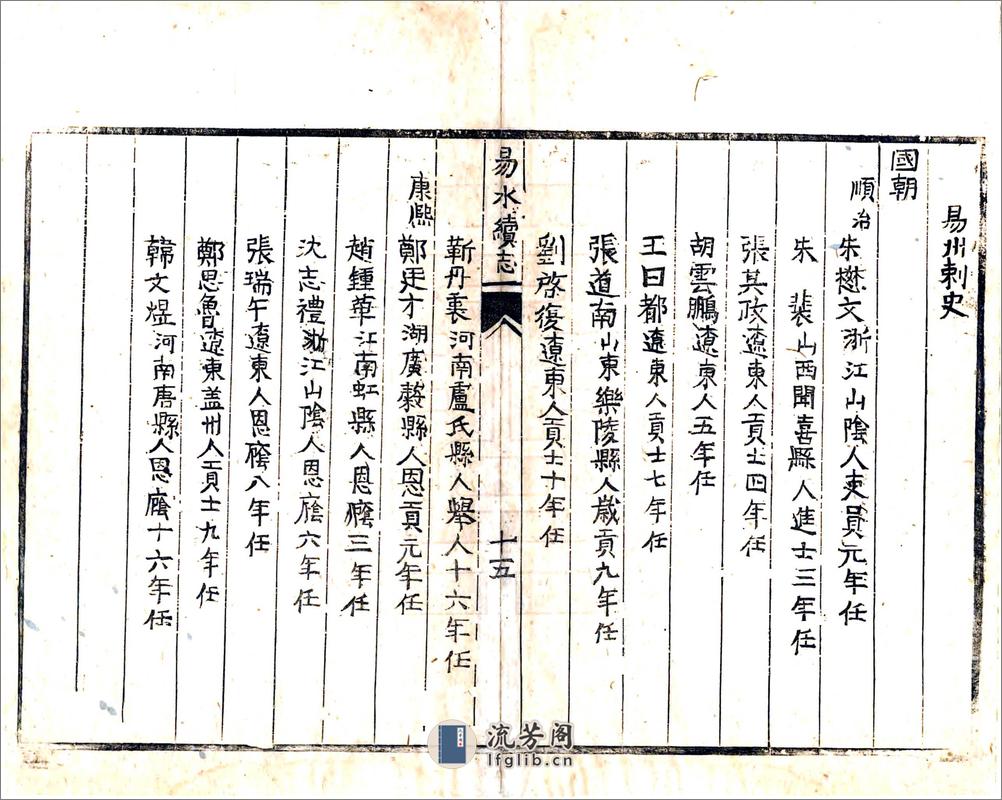 易州刺史
國朝
順治
朱懋文浙江山陰人吏員元年任
朱　裴山西聞喜縣人進士三年任
張其政遼東人貢士四年任
胡雲鵬遼東人五年任
王曰都遼東人貢士七年任
張道南山東樂陵縣人歲貢九年任
劉啓復遼東人貢士十年任
易水續志
十五
靳丹衷河南盧氏縣人舉人十六年任
康熙
鄭廷才湖廣穀縣人恩貢元年任
趙鍾華江南虹縣人恩廕三年任
沈志禮浙江山陰人恩廕六年任
張瑞午遼東人恩廕八年任
鄭思魯遼東盖州人貢士九年任
韓文煜河南唐縣人恩廕十六年任
流芳阁
lfglib.cn